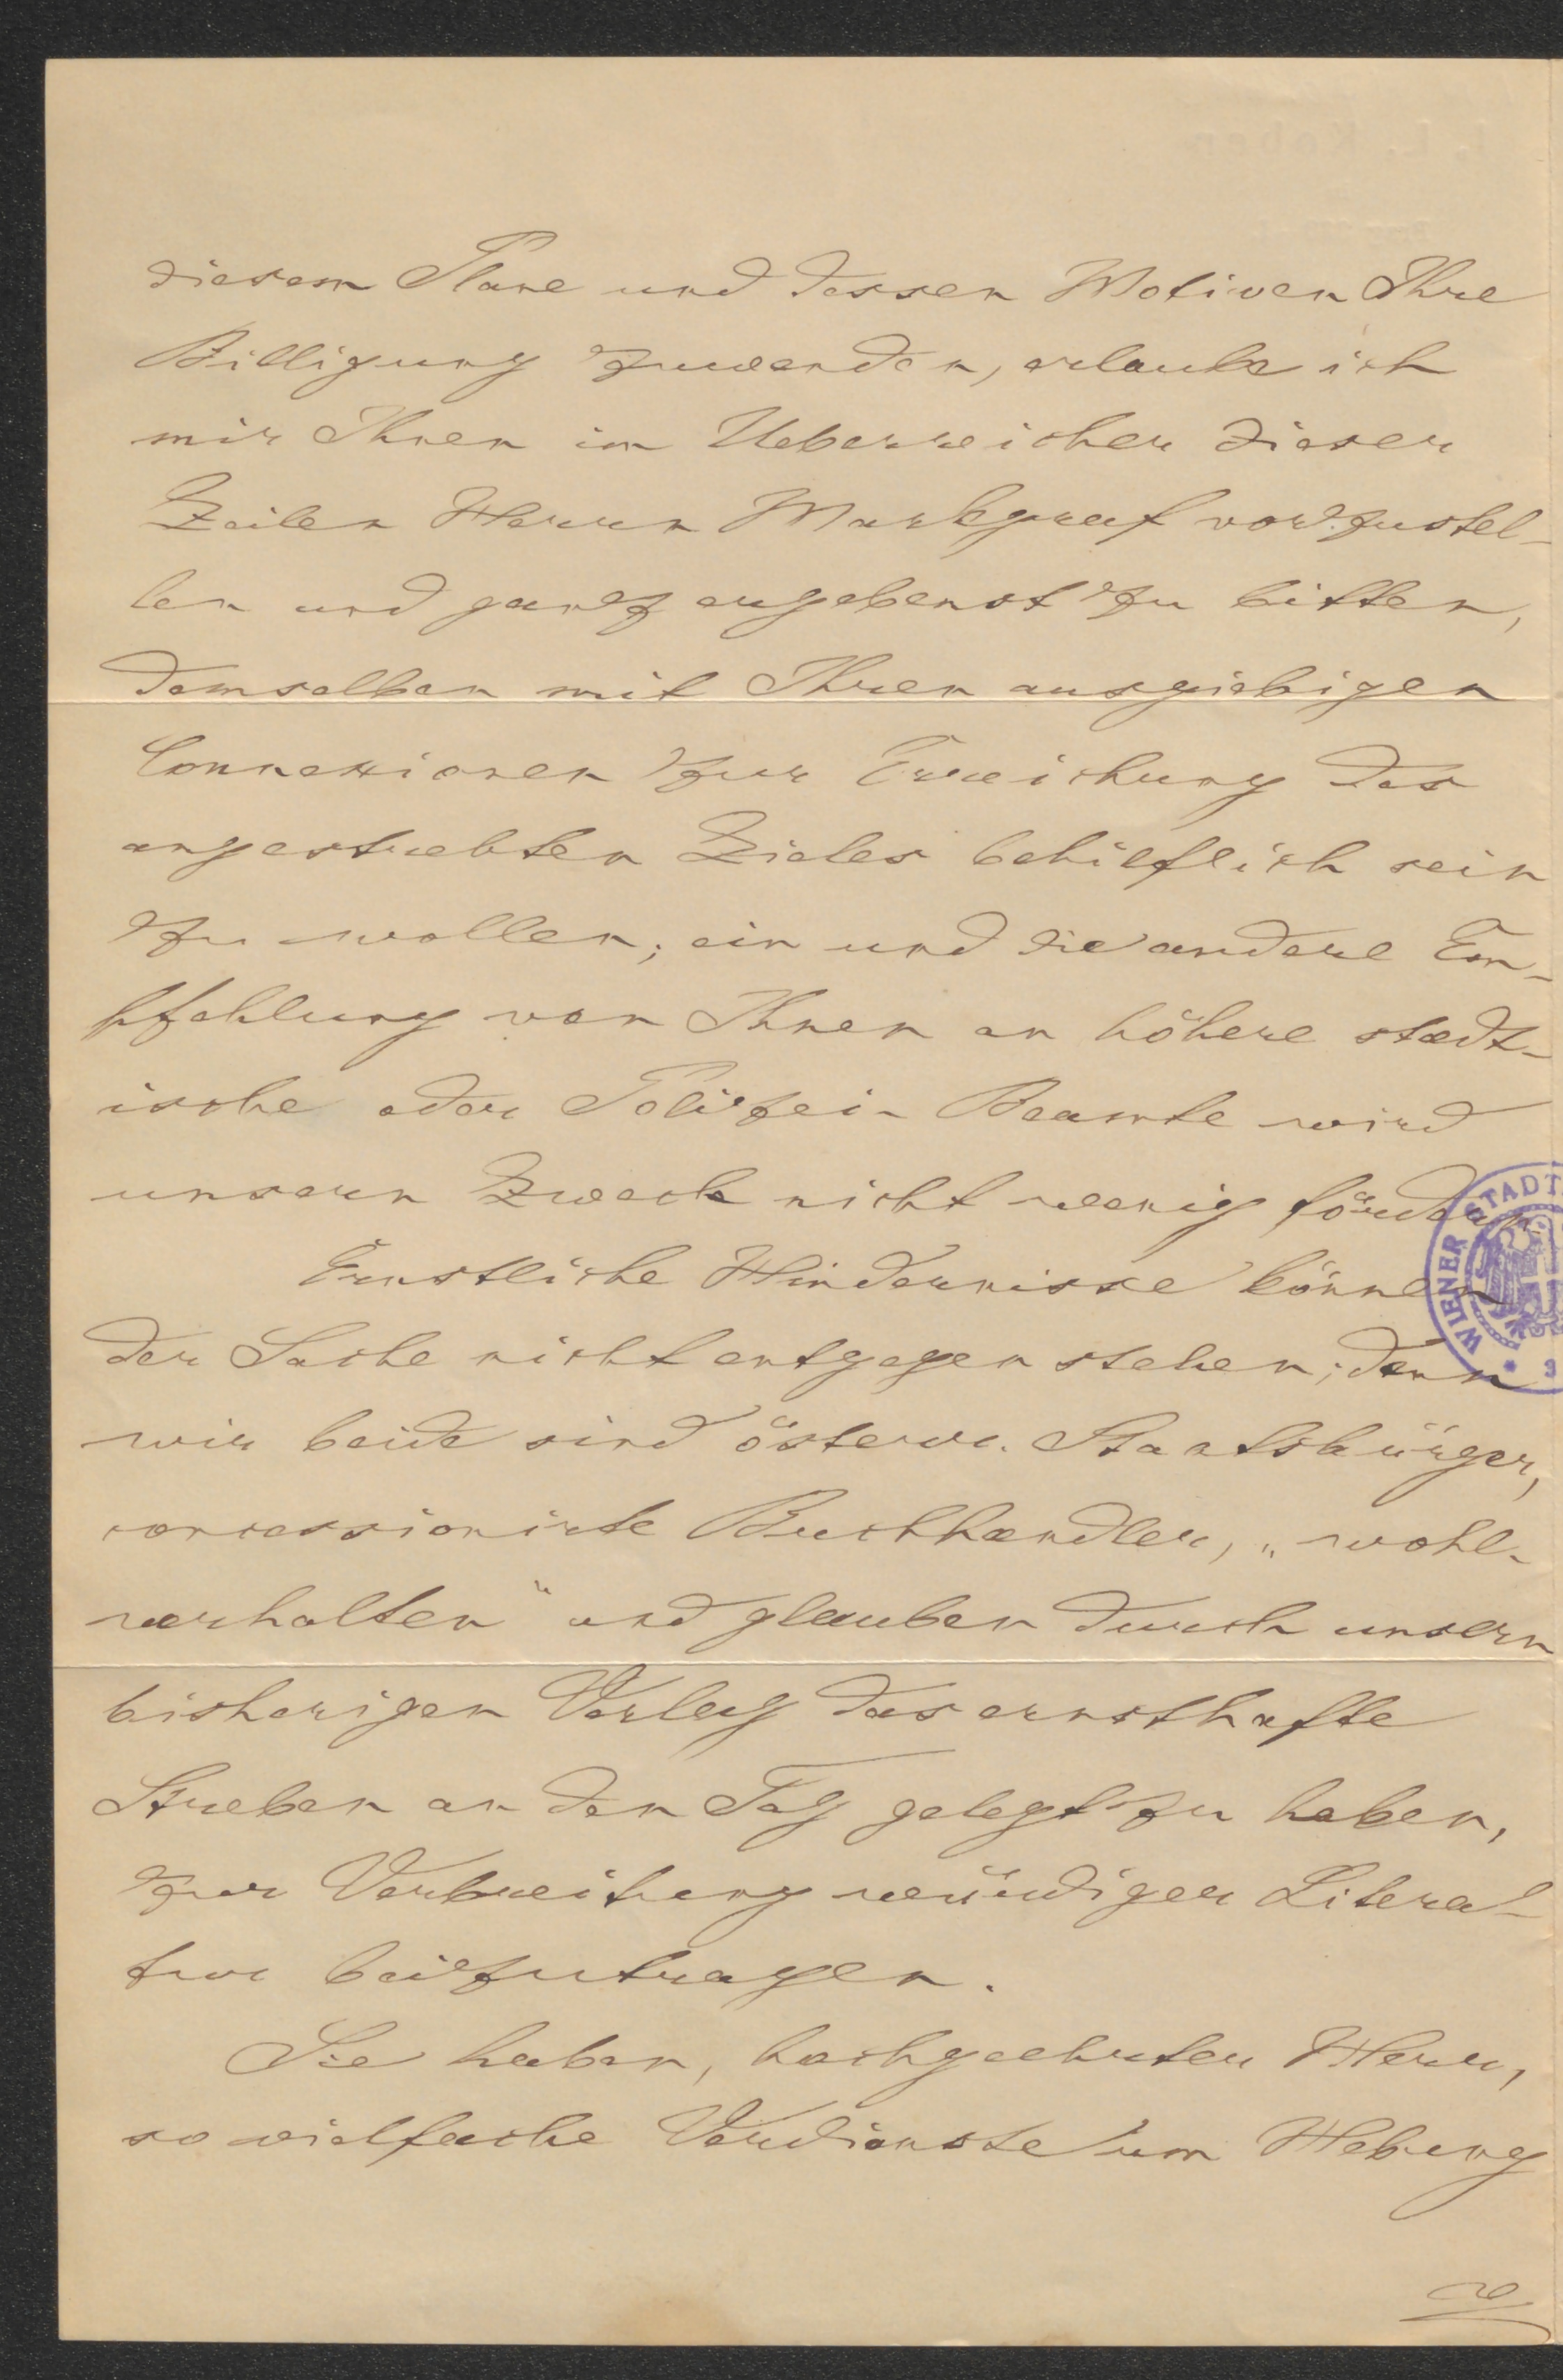 diesem Plane und dessen Motiven Ihre
Billigung zuwenden, erlaube ich
mir Ihnen im Ueberreicher dieser
Zeilen Herrn Markgraf vorzustel-
len und ganz ergebenst zu bitten,
demselben mit Ihren ausgiebigen
Connexionen zur Erreichung des
angestrebten Zieles behilflich sein
zu wollen; ein und die andere Em-
pfehlung von Ihnen an höhere städt-
ische oder Polizei-Beamte wird
unsern Zweck nicht wenig fördern.
Ernstliche Hindernisse können
der Sache nicht entgegen stehen; denn
wir beide sind österr. Staatsbürger,
concessionirte Buchhaendler, „wohl-
verhalten" und glauben durch unsern
bisherigen Verlag das ernsthafte
Streben an den Tag gelegt zu haben,
zur Verbreitung würdiger Litera-
tur beizutragen.
Sie haben, hochgeehrter Herr,
so vielfache Verdienste um Hebung
WIENER STADT